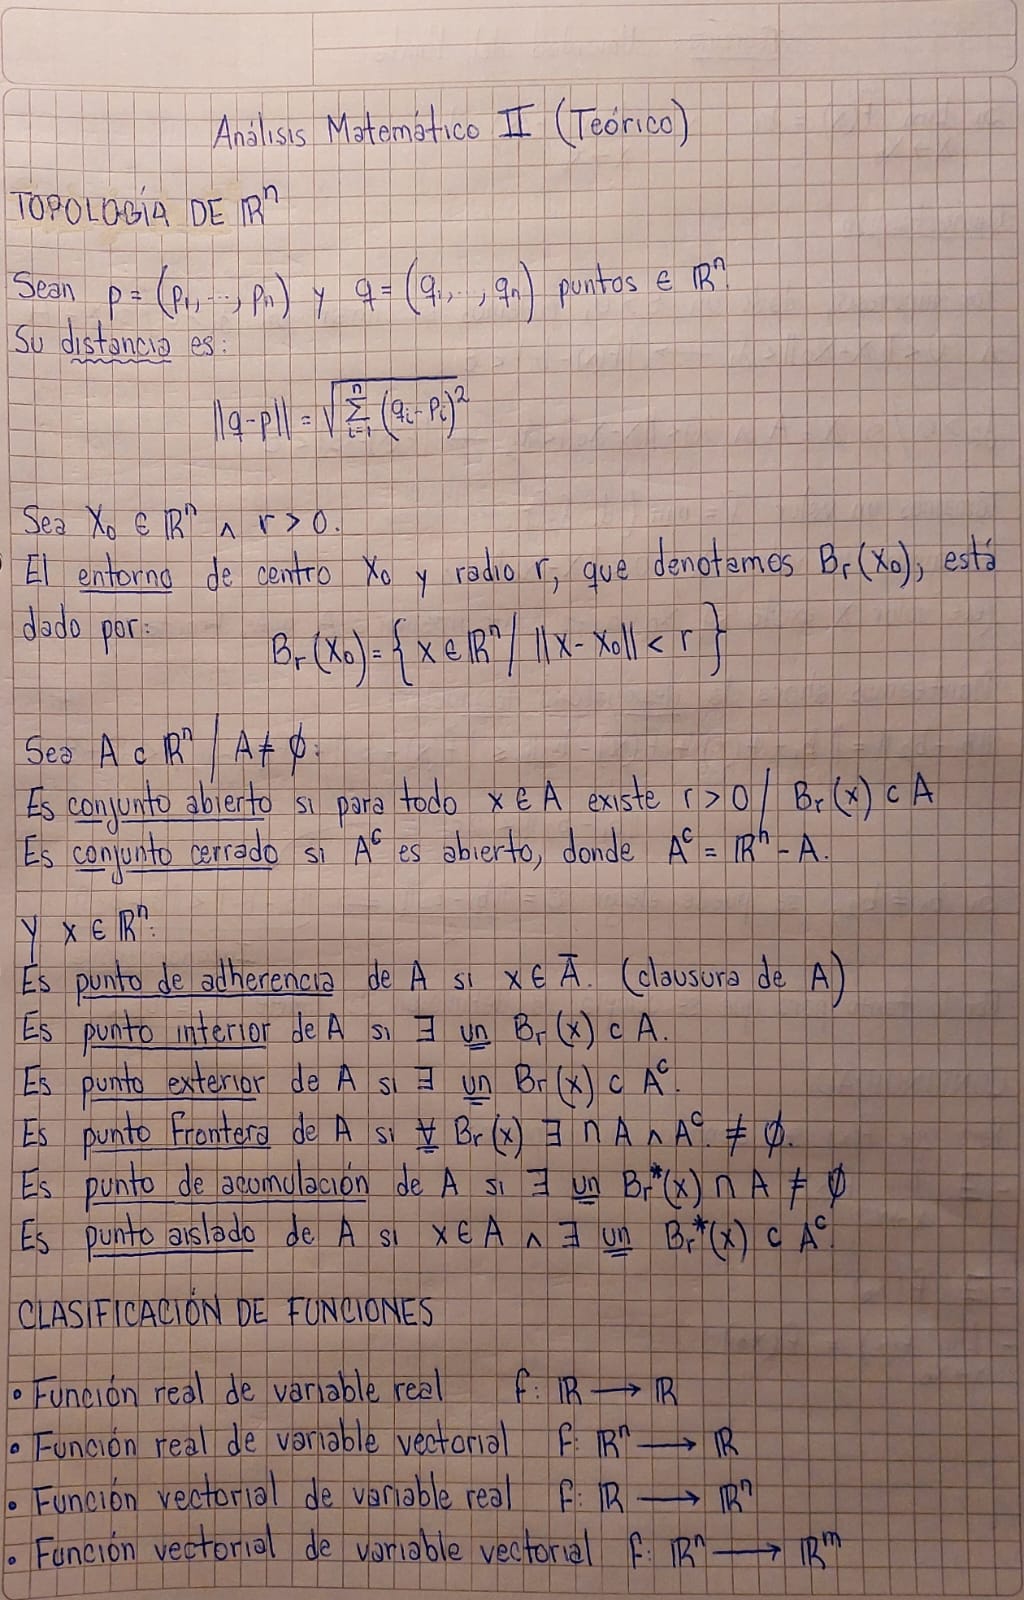 Análisis Matemático II (Teórico)
TOPOLOGÍA DE ℝⁿ
Sean p = (p₁, ..., pₙ) y q = (q₁, .., qₙ) puntos ∈ ℝⁿ.
Su distancia es:
||q-p|| = √(∑ᵢ₌₁ⁿ (qᵢ - pᵢ)²)
Sea x₀ ∈ ℝⁿ ∧ r > 0.
El entorno de centro x₀ y radio r, que denotamos Bᵣ(x₀), está
dado por:
Bᵣ(x₀) = { x ∈ ℝⁿ / ||x - x₀|| < r }
Sea A ⊂ ℝⁿ / A ≠ ∅:
Es conjunto abierto si para todo x ∈ A existe r > 0 / Bᵣ(x) ⊂ A
Es conjunto cerrado si Aᶜ es abierto, donde Aᶜ = ℝⁿ - A.
y x ∈ ℝⁿ:
Es punto de adherencia de A si x ∈ Ā. (clausura de A)
Es punto interior de A si ∃ un Bᵣ(x) ⊂ A.
Es punto exterior de A si ∃ un Bᵣ(x) ⊂ Aᶜ.
Es punto frontera de A si ∀ Bᵣ(x) ∃ ∩ A ∧ Aᶜ. ≠ ∅.
Es punto de acomulación de A si ∃ un Bᵣ*(x) ∩ A ≠ ∅
Es punto aislado de A si x ∈ A ∧ ∃ un Bᵣ*(x) ⊂ Aᶜ.
CLASIFICACIÓN DE FUNCIONES
• Función real de variable real f: ℝ ⟶ ℝ
• Función real de variable vectorial f: ℝⁿ ⟶ ℝ
• Función vectorial de variable real f: ℝ ⟶ ℝⁿ
• Función vectorial de variable vectorial f: ℝⁿ ⟶ ℝᵐ